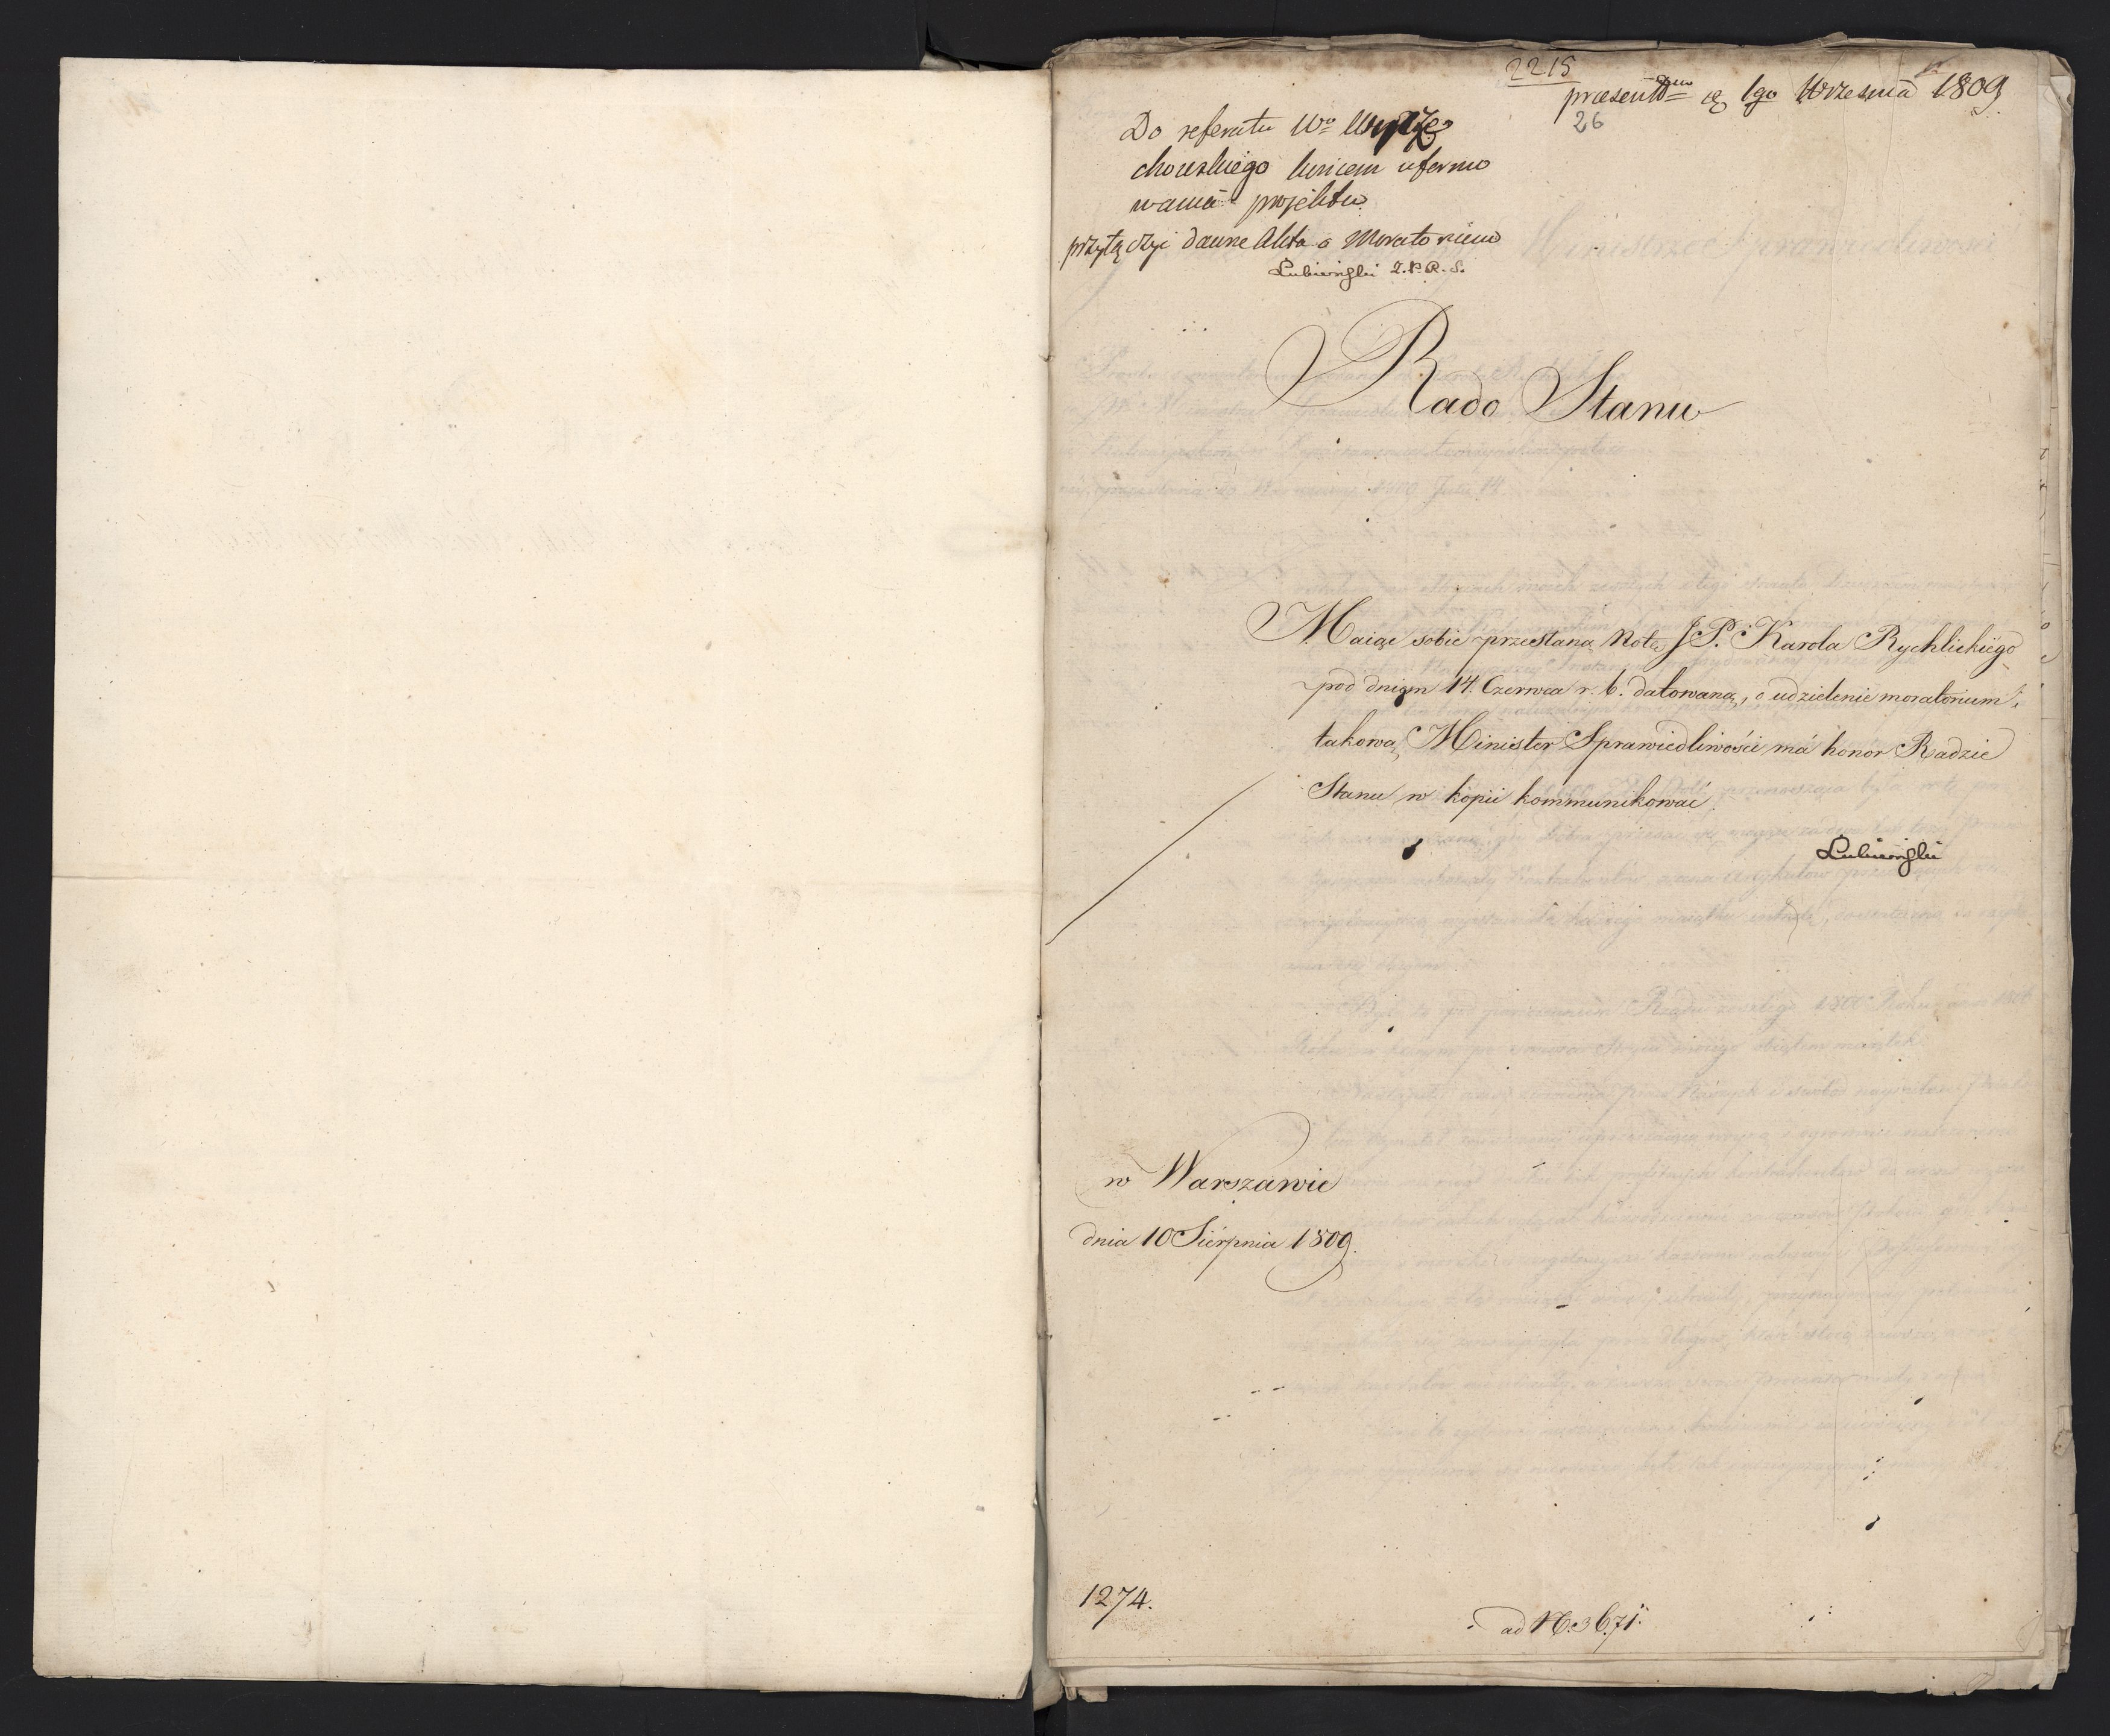 2215
praesentm 1go Wrzesnia 1809
26
Do referatu Wo
chowskiego koncem uformo
wania projektu
przyłączyć dawne Akta o Moratorium
Lubieński
Rado Stanu
Maiąc sobie przesłaną Notę J P. Karola Rychlickiego
pod dniem 14. Czerwca r. b. datowaną, o udzielenie moratorium,
takową Minister Sprawiedliwości má honor Radzie
Stanu w kopii kommunikować.
Lubieński
w Warszawie
dnia 10 Sierpnia 1809.
1274.
ad N. 3671.